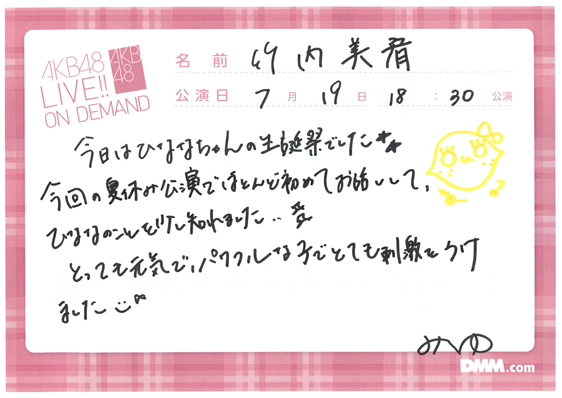 AKB48
LIVE!!
ON DEMAND
AKB
48
名前 竹内美宥
公演日 7月19日 18:30公演
今日はひななちゃんの生誕祭でした
今回の夏休み公演でほとんど初めてお話しして、
ひななのことを少し知れました..
とっても元気で、パワフルな子でとても刺激をうけ
ました
みゆ
DMM.com